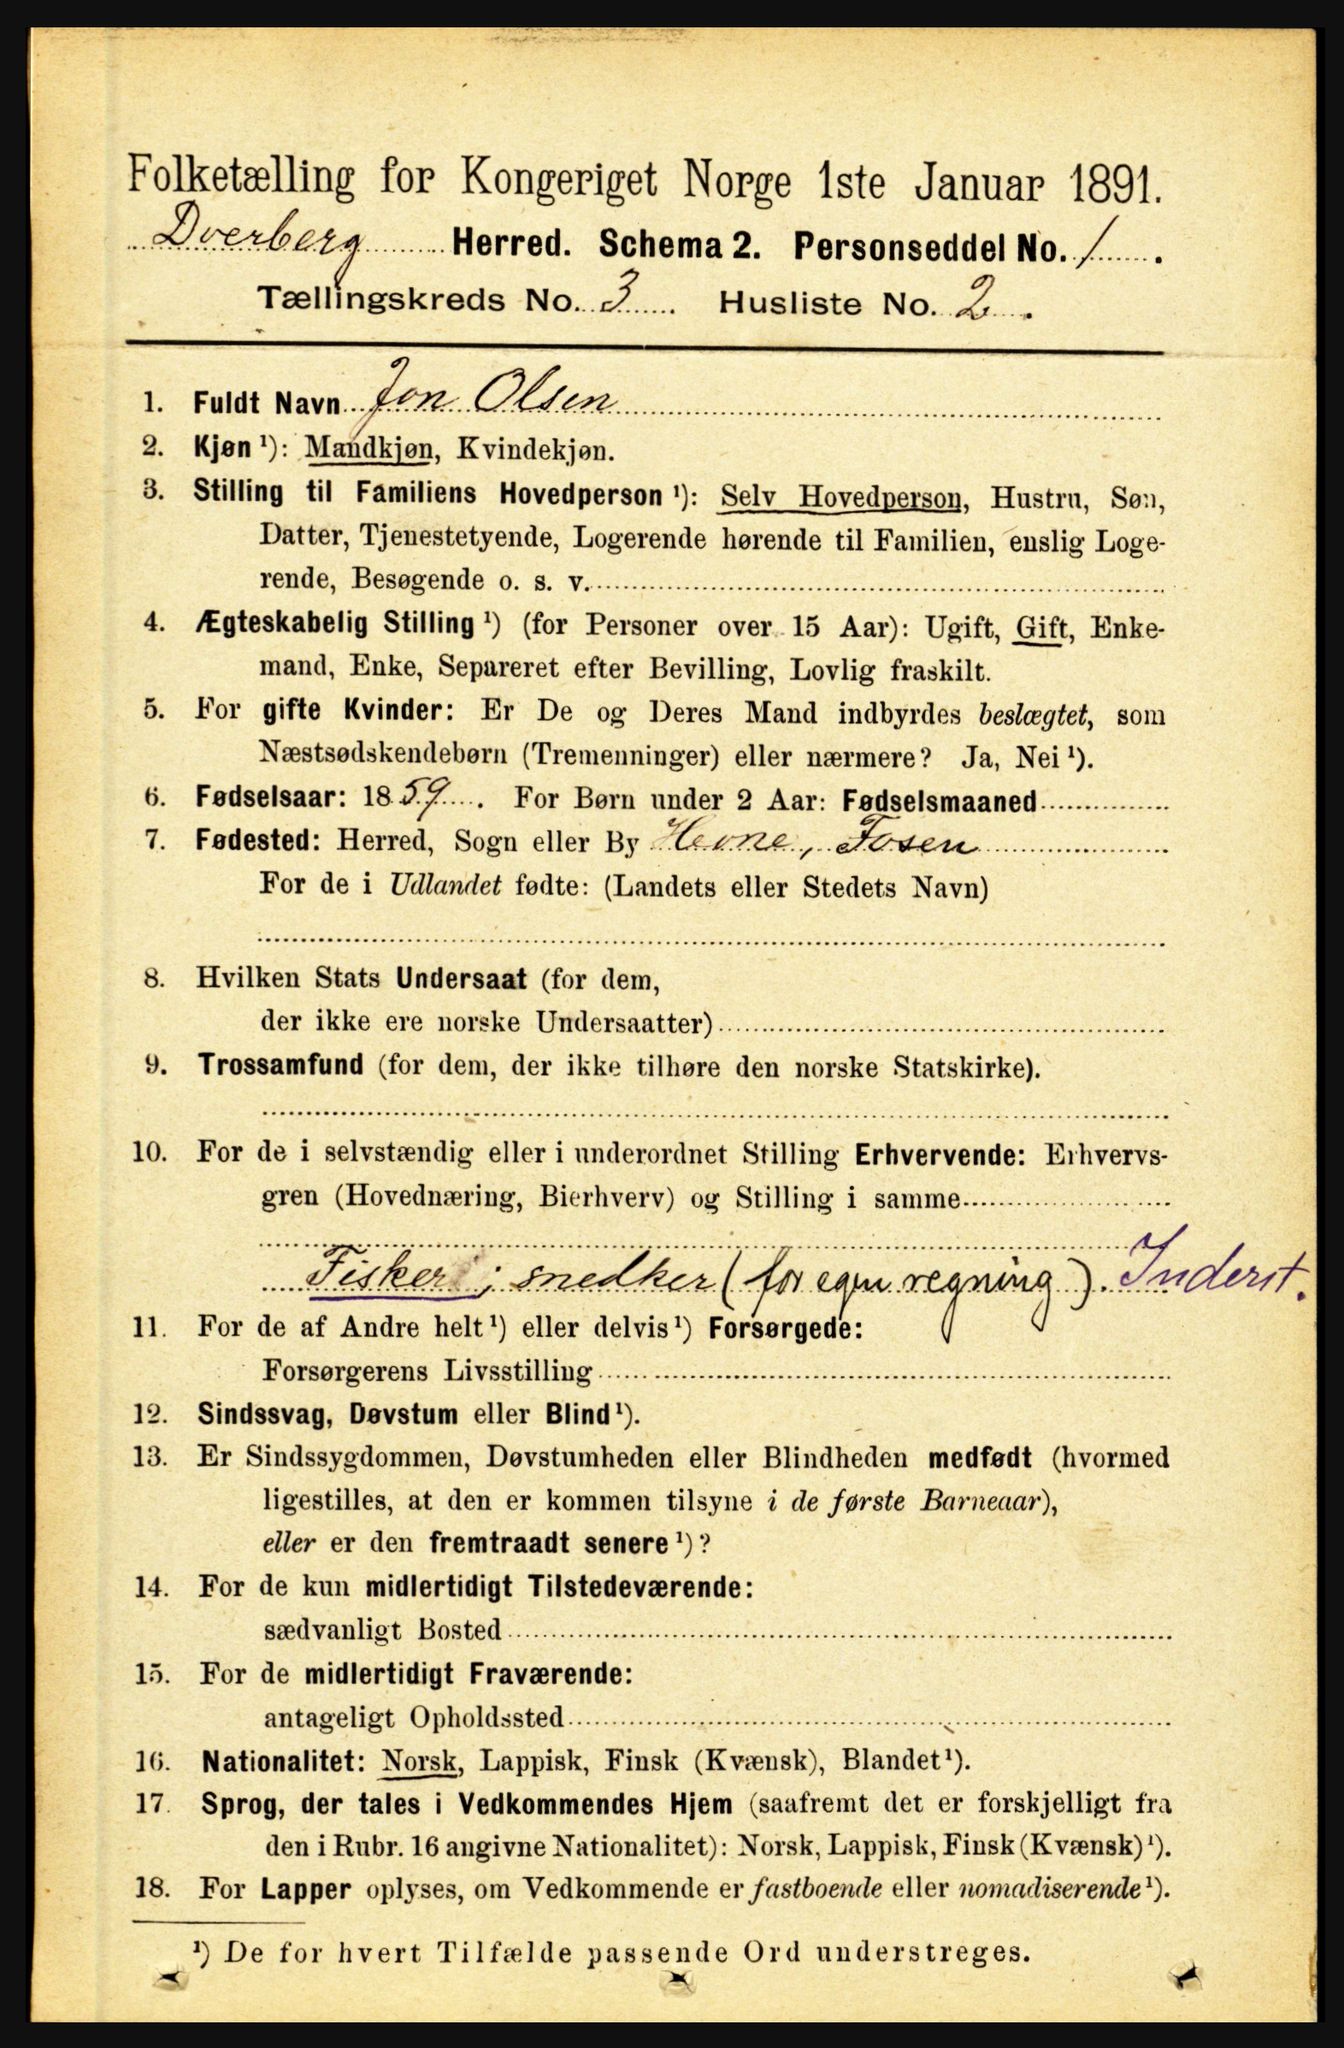 Folketælling for Kongeriget Norge 1ste Januar 1891.
Dverberg Herred. Schema 2. Personseddel No. 1.
Tællingskreds No. 3. Husliste No. 2.
1. Fuldt Navn Jon Olsen
2. Kjøn ¹): Mandkjøn, Kvindekjøn.
3. Stilling til Familiens Hovedperson ¹): Selv Hovedperson, Hustru, Søn,
Datter, Tjenestetyende, Logerende hørende til Familien, enslig Loge-
rende, Besøgende o. s. v.
4. Ægteskabelig Stilling ¹) (for Personer over 15 Aar): Ugift, Gift, Enke-
mand, Enke, Separeret efter Bevilling, Lovlig fraskilt.
5. For gifte Kvinder: Er De og Deres Mand indbyrdes beslægtet, som
Næstsødskendebørn (Tremenninger) eller nærmere? Ja, Nei ¹).
6. Fødselsaar: 1859. For Børn under 2 Aar: Fødselsmaaned
7. Fødested: Herred, Sogn eller By Hevne, Fosen
For de i Udlandet fødte: (Landets eller Stedets Navn)
8. Hvilken Stats Undersaat (for dem,
der ikke ere norske Undersaatter)
9. Trossamfund (for dem, der ikke tilhøre den norske Statskirke).
10. For de i selvstændig eller i underordnet Stilling Erhvervende: Erhvervs-
gren (Hovednæring, Bierhverv) og Stilling i samme
Fisker; snedker (for egen regning). Inderst.
11. For de af Andre helt ¹) eller delvis ¹) Forsørgede:
Forsørgerens Livsstilling
12. Sindssvag, Døvstum eller Blind ¹).
13. Er Sindssygdommen, Døvstumheden eller Blindheden medfødt (hvormed
ligestilles, at den er kommen tilsyne i de første Barneaar),
eller er den fremtraadt senere ¹)?
14. For de kun midlertidigt Tilstedeværende:
sædvanligt Bosted
15. For de midlertidigt Fraværende:
antageligt Opholdssted
16. Nationalitet: Norsk, Lappisk, Finsk (Kvænsk), Blandet ¹).
17. Sprog, der tales i Vedkommendes Hjem (saafremt det er forskjelligt fra
den i Rubr. 16 angivne Nationalitet): Norsk, Lappisk, Finsk (Kvænsk) ¹).
18. For Lapper oplyses, om Vedkommende er fastboende eller nomadiserende ¹).
¹) De for hvert Tilfælde passende Ord understreges.